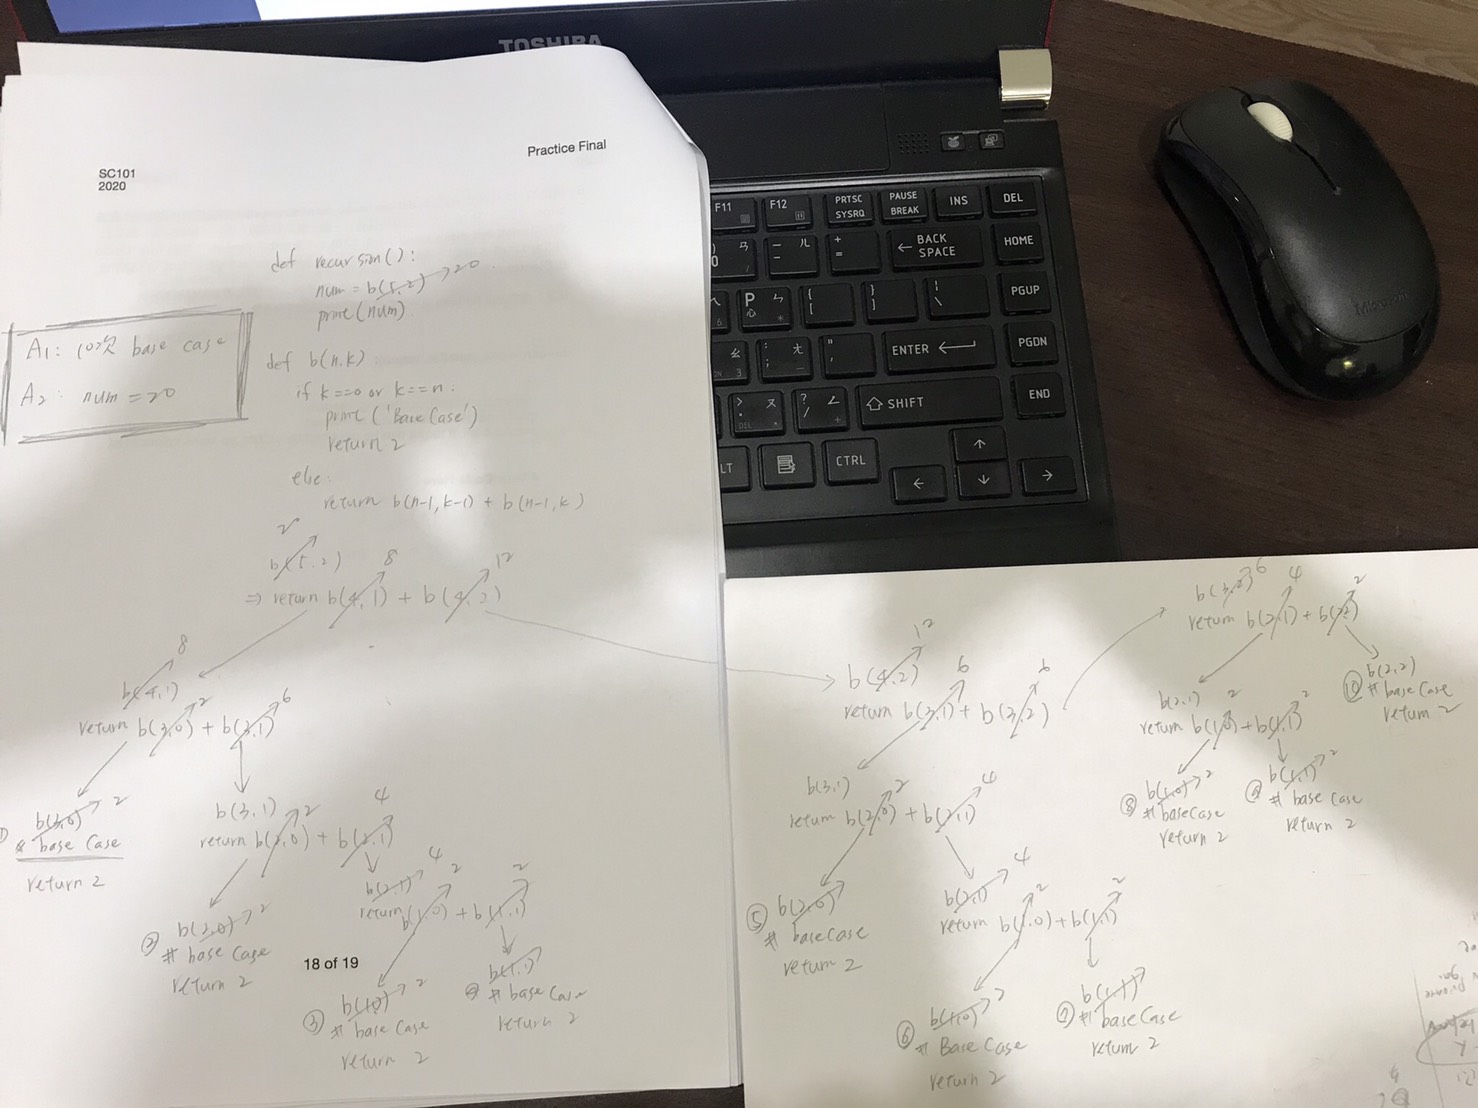 TOSHIBA
Practice Final
SC101
2020
def recursion():
num = b(5,2) → 20
print(num)
A1: 10次 base case
A2: num = 20
def b(n,k):
if k==0 or k==n:
print('Base Case')
return 2
else:
return b(n-1,k-1) + b(n-1,k)
b(5,2)
8
12
⇒ return b(4,1) + b(4,2)
8
b(4,1)
2
6
return b(3,0) + b(3,1)
b(3,0) 2
# base case
return 2
b(3,1)
2
4
return b(2,0) + b(2,1)
② b(2,0) 2
# base case
return 2
b(2,1) 4
2
2
return b(1,0) + b(1,1)
③ b(1,0) 2
# base case
return 2
b(1,1)
# base case
return 2
18 of 19
12
b(4,2)
6
6
return b(3,1) + b(3,2)
b(3,1)
2
4
return b(2,0) + b(2,1)
⑤ b(2,0)
# base case
return 2
b(2,1) 4
2
2
return b(1,0) + b(1,1)
⑥ b(1,0) 2
# Base Case
return 2
⑦ b(1,1)
# base case
return 2
b(3,2) 6
4
2
return b(2,1) + b(2,2)
b(2,1)
2
2
return b(1,0) + b(1,1)
⑧ b(1,0) 2
# base case
return 2
⑨ b(1,1) 2
# base case
return 2
⑩ b(2,2)
# base case
return 2
F11
F12
PRTSC
SYSRQ
PAUSE
BREAK
INS
DEL
BACK
SPACE
HOME
P
ㄣ
心
[
{
]
}
\
PGUP
ENTER
PGDN
SHIFT
END
CTRL
Microsoft